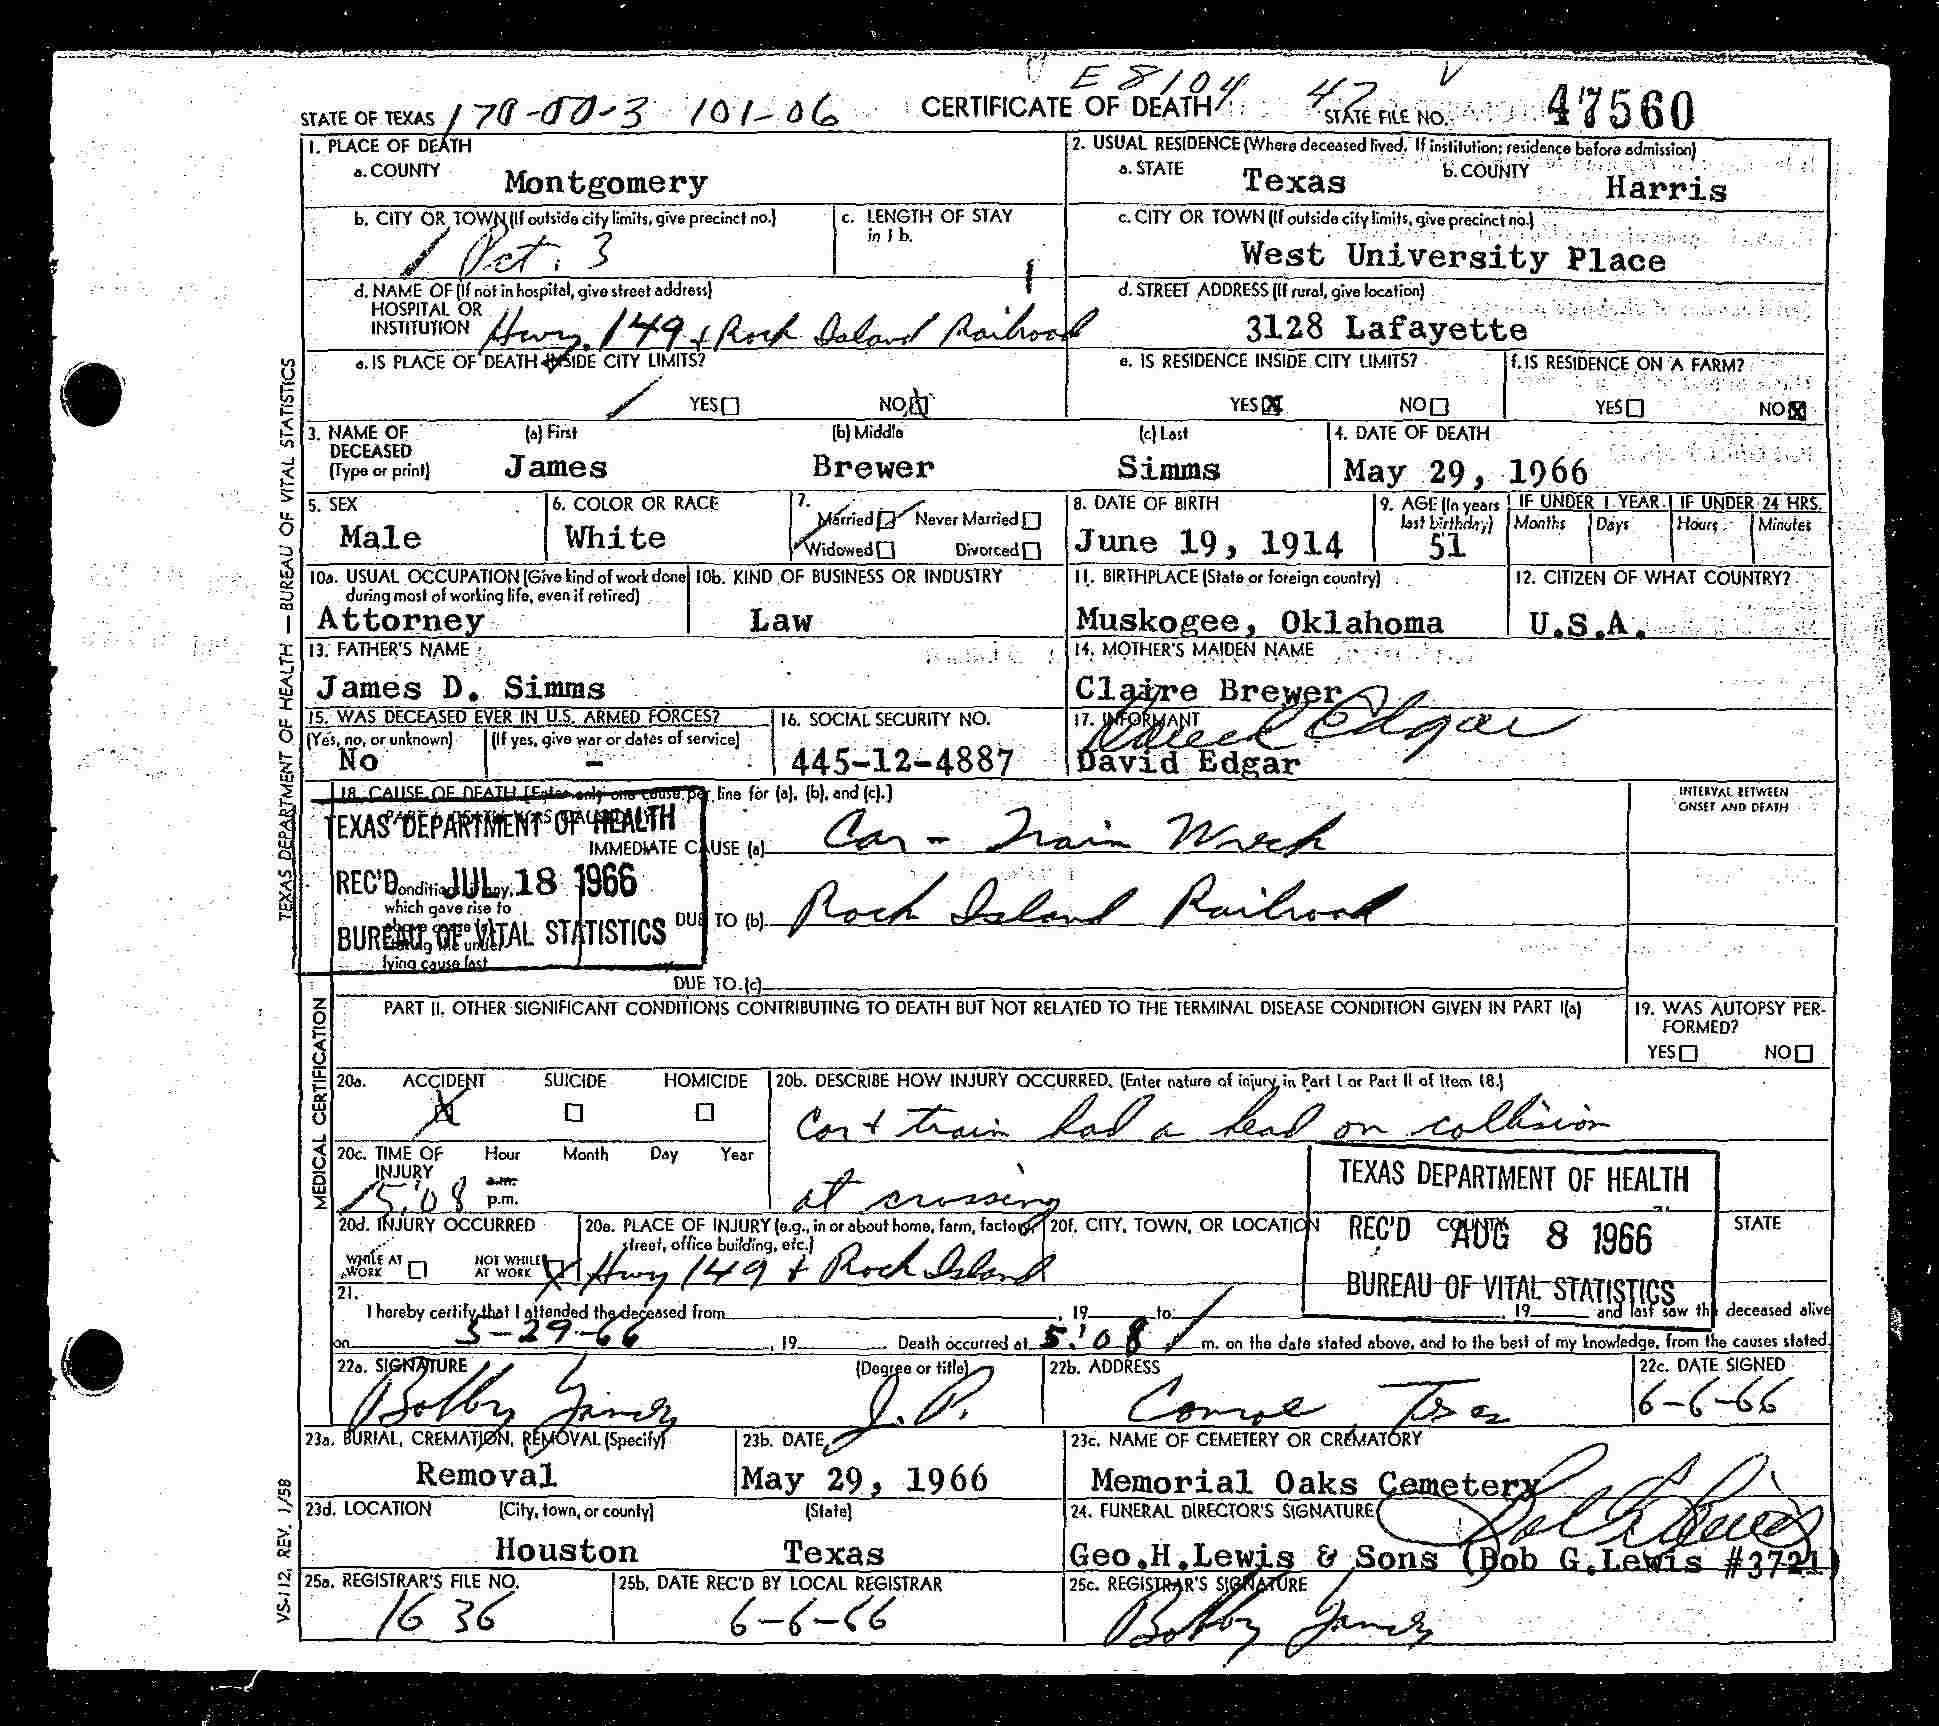 E 8104 47 V
STATE OF TEXAS 170-00-3 101-06 CERTIFICATE OF DEATH STATE FILE NO. 47560
1. PLACE OF DEATH
a. COUNTY Montgomery
2. USUAL RESIDENCE (Where deceased lived. If institution: residence before admission)
a. STATE Texas b. COUNTY Harris
b. CITY OR TOWN (If outside city limits, give precinct no.) Pct. 3
c. LENGTH OF STAY in 1 b.
c. CITY OR TOWN (If outside city limits, give precinct no.)
West University Place
d. NAME OF (If not in hospital, give street address)
HOSPITAL OR
INSTITUTION Hwy. 149 + Rock Island Railroad
d. STREET ADDRESS (If rural, give location)
3128 Lafayette
e. IS PLACE OF DEATH INSIDE CITY LIMITS?
YES NO
e. IS RESIDENCE INSIDE CITY LIMITS?
YES NO
f. IS RESIDENCE ON A FARM?
YES NO
3. NAME OF DECEASED (Type or print)
(a) First James (b) Middle Brewer (c) Last Simms
4. DATE OF DEATH May 29, 1966
5. SEX Male
6. COLOR OR RACE White
7. Married Never Married
Widowed Divorced
8. DATE OF BIRTH June 19, 1914
9. AGE (In years last birthday) 51
IF UNDER 1 YEAR Months Days
IF UNDER 24 HRS. Hours Minutes
10a. USUAL OCCUPATION (Give kind of work done during most of working life, even if retired)
Attorney
10b. KIND OF BUSINESS OR INDUSTRY
Law
11. BIRTHPLACE (State or foreign country)
Muskogee, Oklahoma
12. CITIZEN OF WHAT COUNTRY?
U.S.A.
13. FATHER'S NAME
James D. Simms
14. MOTHER'S MAIDEN NAME
Claire Brewer
15. WAS DECEASED EVER IN U.S. ARMED FORCES?
(Yes, no, or unknown) (If yes, give war or dates of service)
No -
16. SOCIAL SECURITY NO.
445-12-4887
17. INFORMANT
David Edgar
David Edgar
18. CAUSE OF DEATH [Enter only one cause per line for (a), (b), and (c).]
INTERVAL BETWEEN ONSET AND DEATH
IMMEDIATE CAUSE (a) Car - Train Wreck
Conditions, if any, which gave rise to
lying cause last
DUE TO (b) Rock Island Railroad
DUE TO (c)
TEXAS DEPARTMENT OF HEALTH
REC'D JUL 18 1966
BUREAU OF VITAL STATISTICS
PART II. OTHER SIGNIFICANT CONDITIONS CONTRIBUTING TO DEATH BUT NOT RELATED TO THE TERMINAL DISEASE CONDITION GIVEN IN PART I(a)
19. WAS AUTOPSY PERFORMED?
YES NO
20a. ACCIDENT SUICIDE HOMICIDE
20b. DESCRIBE HOW INJURY OCCURRED. (Enter nature of injury in Part I or Part II of Item 18.)
Car + train had a head on collision
at crossing
20c. TIME OF INJURY Hour Month Day Year
5:08 a.m. p.m.
20d. INJURY OCCURRED
WHILE AT WORK NOT WHILE AT WORK
20e. PLACE OF INJURY (e.g., in or about home, farm, factory, street, office building, etc.)
Hwy 149 + Rock Island
20f. CITY, TOWN, OR LOCATION COUNTY STATE
TEXAS DEPARTMENT OF HEALTH
REC'D AUG 8 1966
BUREAU OF VITAL STATISTICS
21. I hereby certify that I attended the deceased from , 19 to , 19 and last saw the deceased alive
on 5-29-66 , 19 . Death occurred at 5:08 m. on the date stated above, and to the best of my knowledge, from the causes stated.
22a. SIGNATURE (Degree or title)
Bobby Yancy J. P.
22b. ADDRESS
Conroe, Texas
22c. DATE SIGNED
6-6-66
23a. BURIAL, CREMATION, REMOVAL (Specify)
Removal
23b. DATE
May 29, 1966
23c. NAME OF CEMETERY OR CREMATORY
Memorial Oaks Cemetery
23d. LOCATION (City, town, or county) (State)
Houston Texas
24. FUNERAL DIRECTOR'S SIGNATURE
Bob G. Lewis
Geo.H.Lewis & Sons (Bob G.Lewis #3721)
25a. REGISTRAR'S FILE NO.
1636
25b. DATE REC'D BY LOCAL REGISTRAR
6-6-66
25c. REGISTRAR'S SIGNATURE
Bobby Yancy
TEXAS DEPARTMENT OF HEALTH — BUREAU OF VITAL STATISTICS
MEDICAL CERTIFICATION
VS-112, REV. 1/58